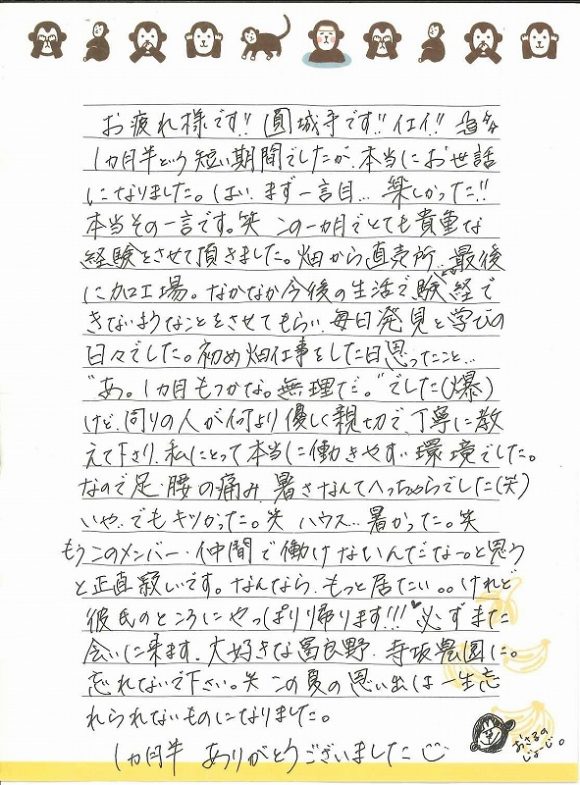 お疲れ様です!! 圓城寺です!! イエイ!!
1ヵ月半という短い期間でしたが、本当にお世話
になりました。はい、まず一言目… 楽しかった!!
本当その一言です。笑 この一ヵ月でとても貴重な
経験をさせて頂きました。畑から直売所、最後
に加工場。なかなか今後の生活で験経で
きないようなことをさせてもらい、毎日発見と学びの
日々でした。初め畑仕事をした日思ったこと…
"あ。1ヵ月もつかな。無理だ。"でした(爆)
けど、周りの人が何より優しく親切で、丁寧に教
えて下さり、私にとって本当に働きやすい環境でした。
なので足・腰の痛み、暑さなんてへっちゃらでした(笑)
いや、でもキツかった。笑 ハウス…暑かった。笑
もうこのメンバー・仲間で働けないんだなー。と思う
と正直寂しいです。なんなら、もっと居たい。。けれど
彼氏のところにやっぱり帰ります!!!♥ 必ずまた
会いに来ます、大好きな富良野、寺坂農園に。
忘れないで下さい。笑 この夏の思い出は一生忘
れられないものになりました。
1ヵ月半 ありがとうございました
おさるの
じょーじ。